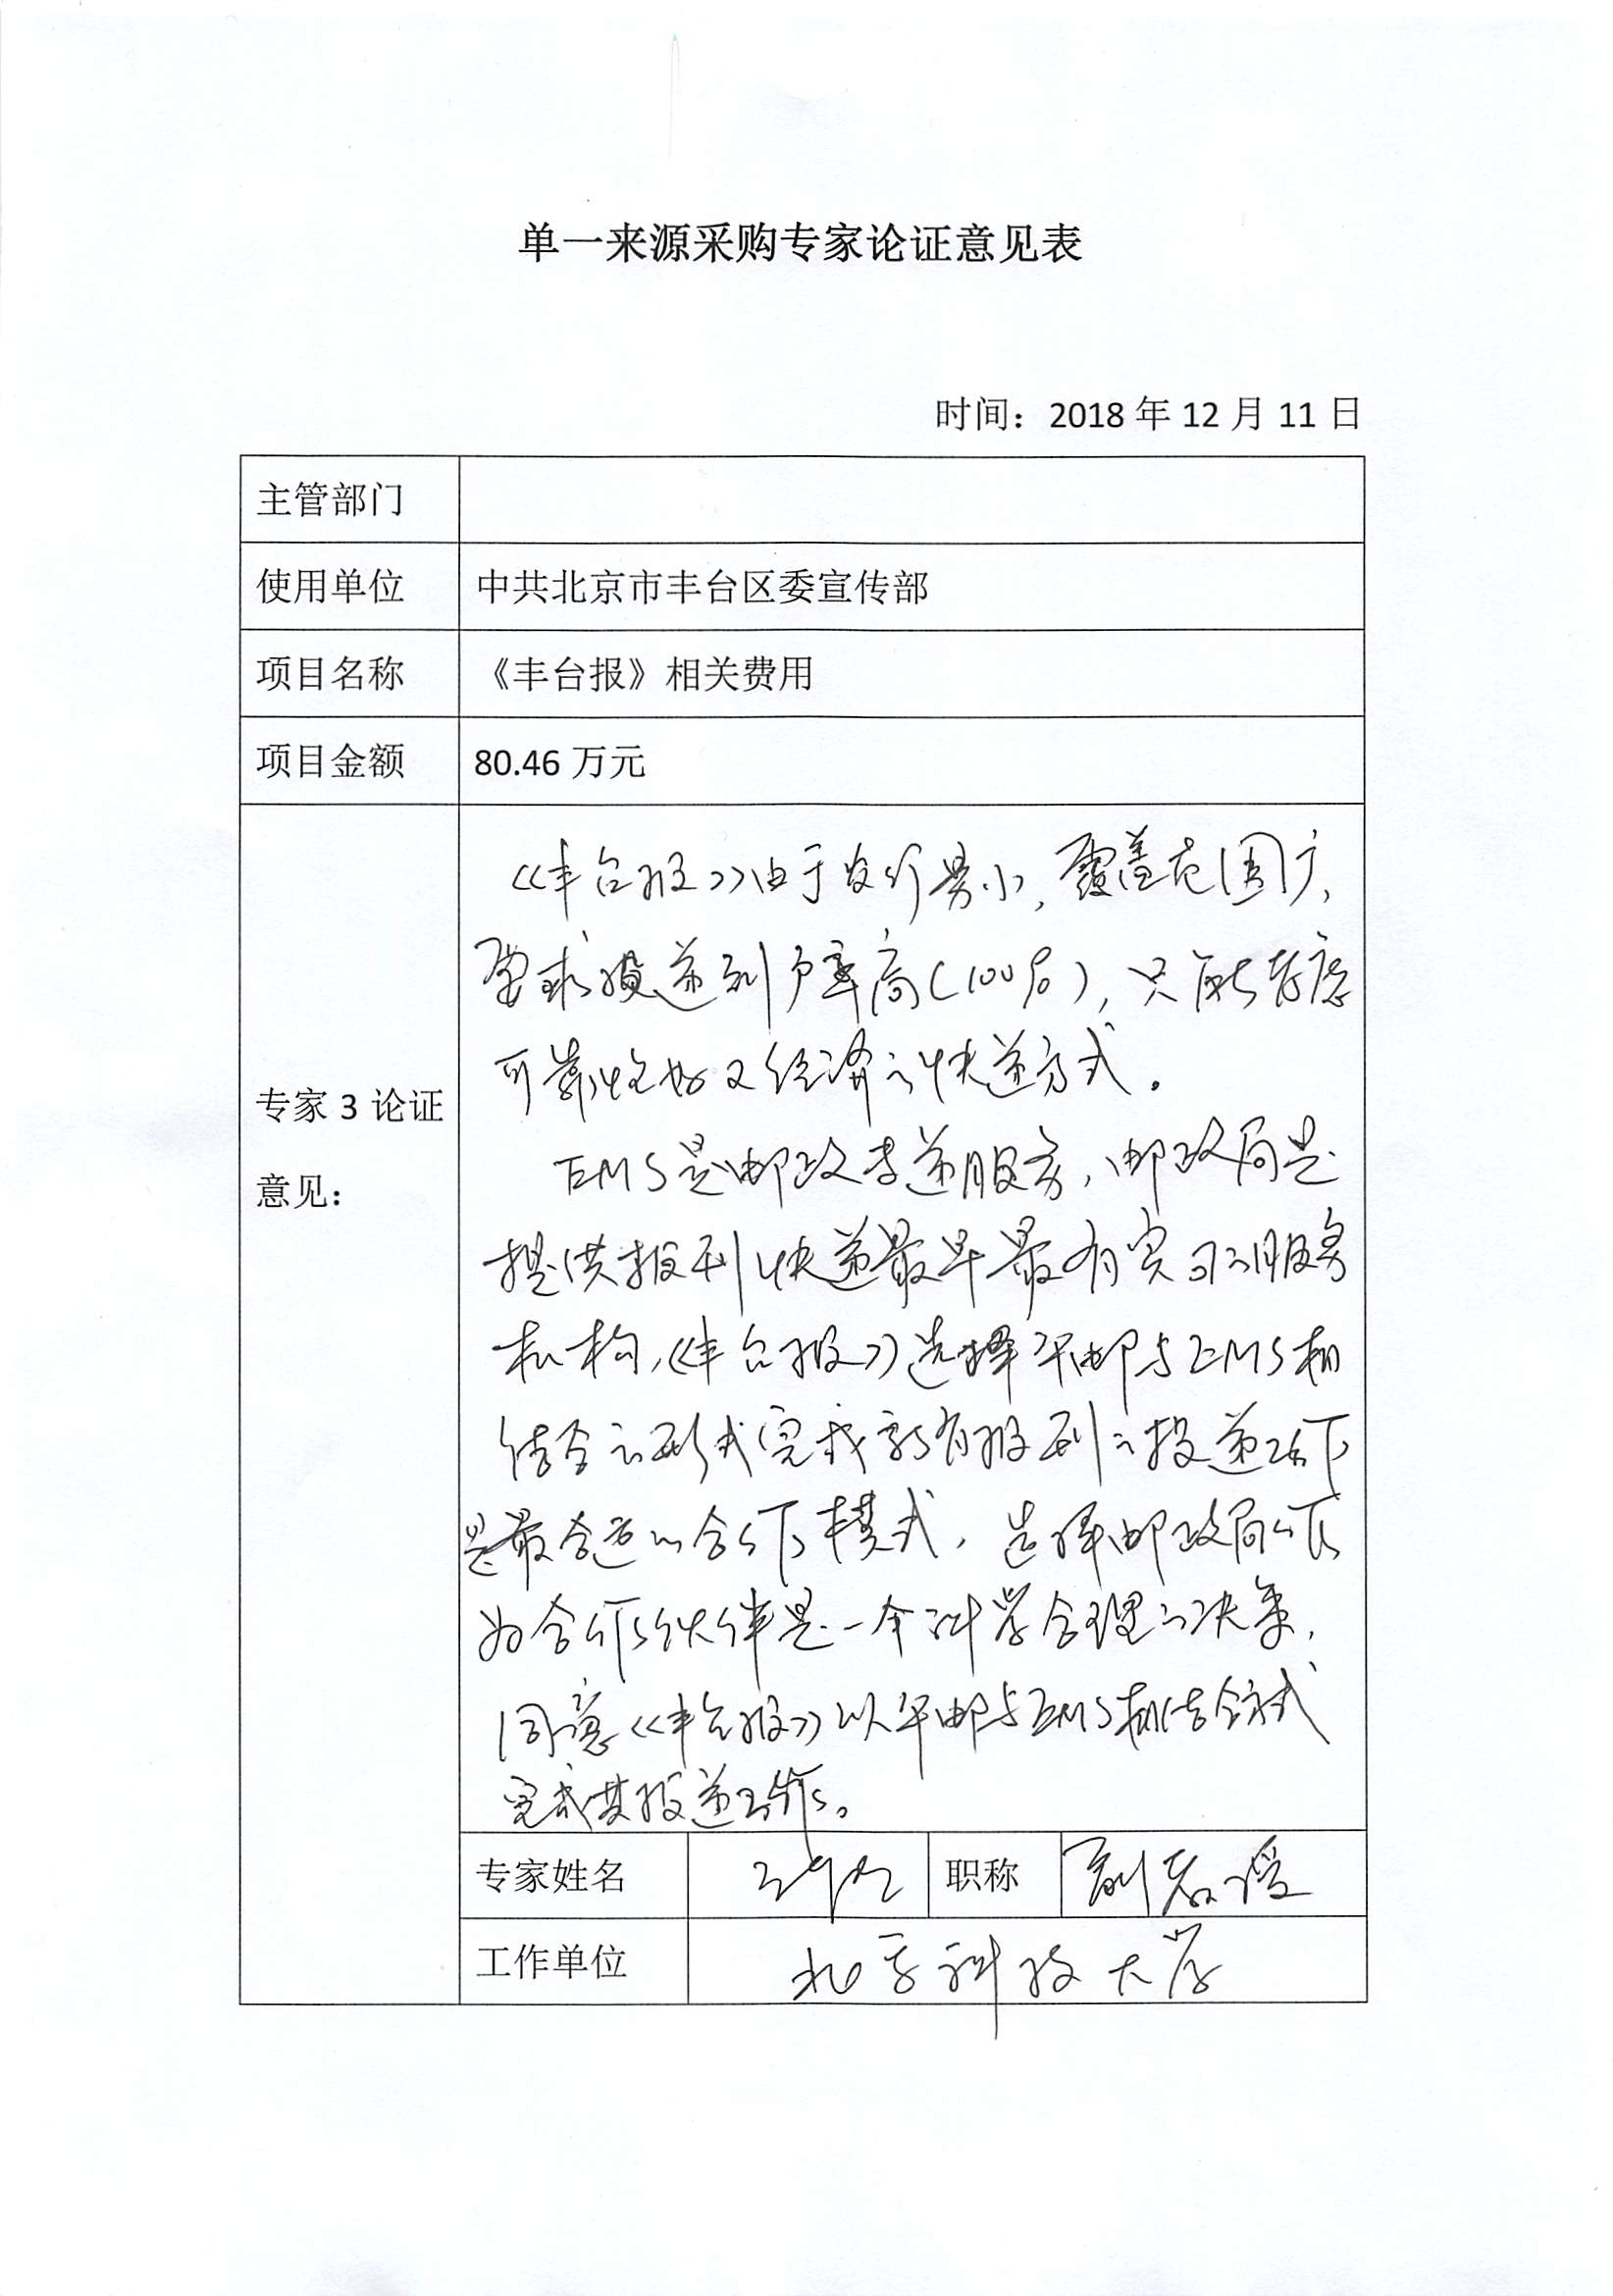 单一来源采购专家论证意见表
时间：2018 年 12 月 11 日
主管部门
使用单位
中共北京市丰台区委宣传部
项目名称
《丰台报》相关费用
项目金额
80.46 万元
专家 3 论证
意见：
《丰台报》由于发行量小，覆盖范围广，
要求投递到户率高（100%），只能考虑
可靠性好又经济之快递方式。
EMS是邮政专递服务，邮政局是
提供报刊快递最早最有实力之服务
机构，《丰台报》选择平邮与EMS相
结合之形式完成所有报刊之投递工作
是最合适的合作模式，选择邮政局作
为合作伙伴是一个科学合理之决策，
同意《丰台报》以平邮与EMS相结合方式
完成其投递工作。
专家姓名
职称
副教授
工作单位
北京科技大学